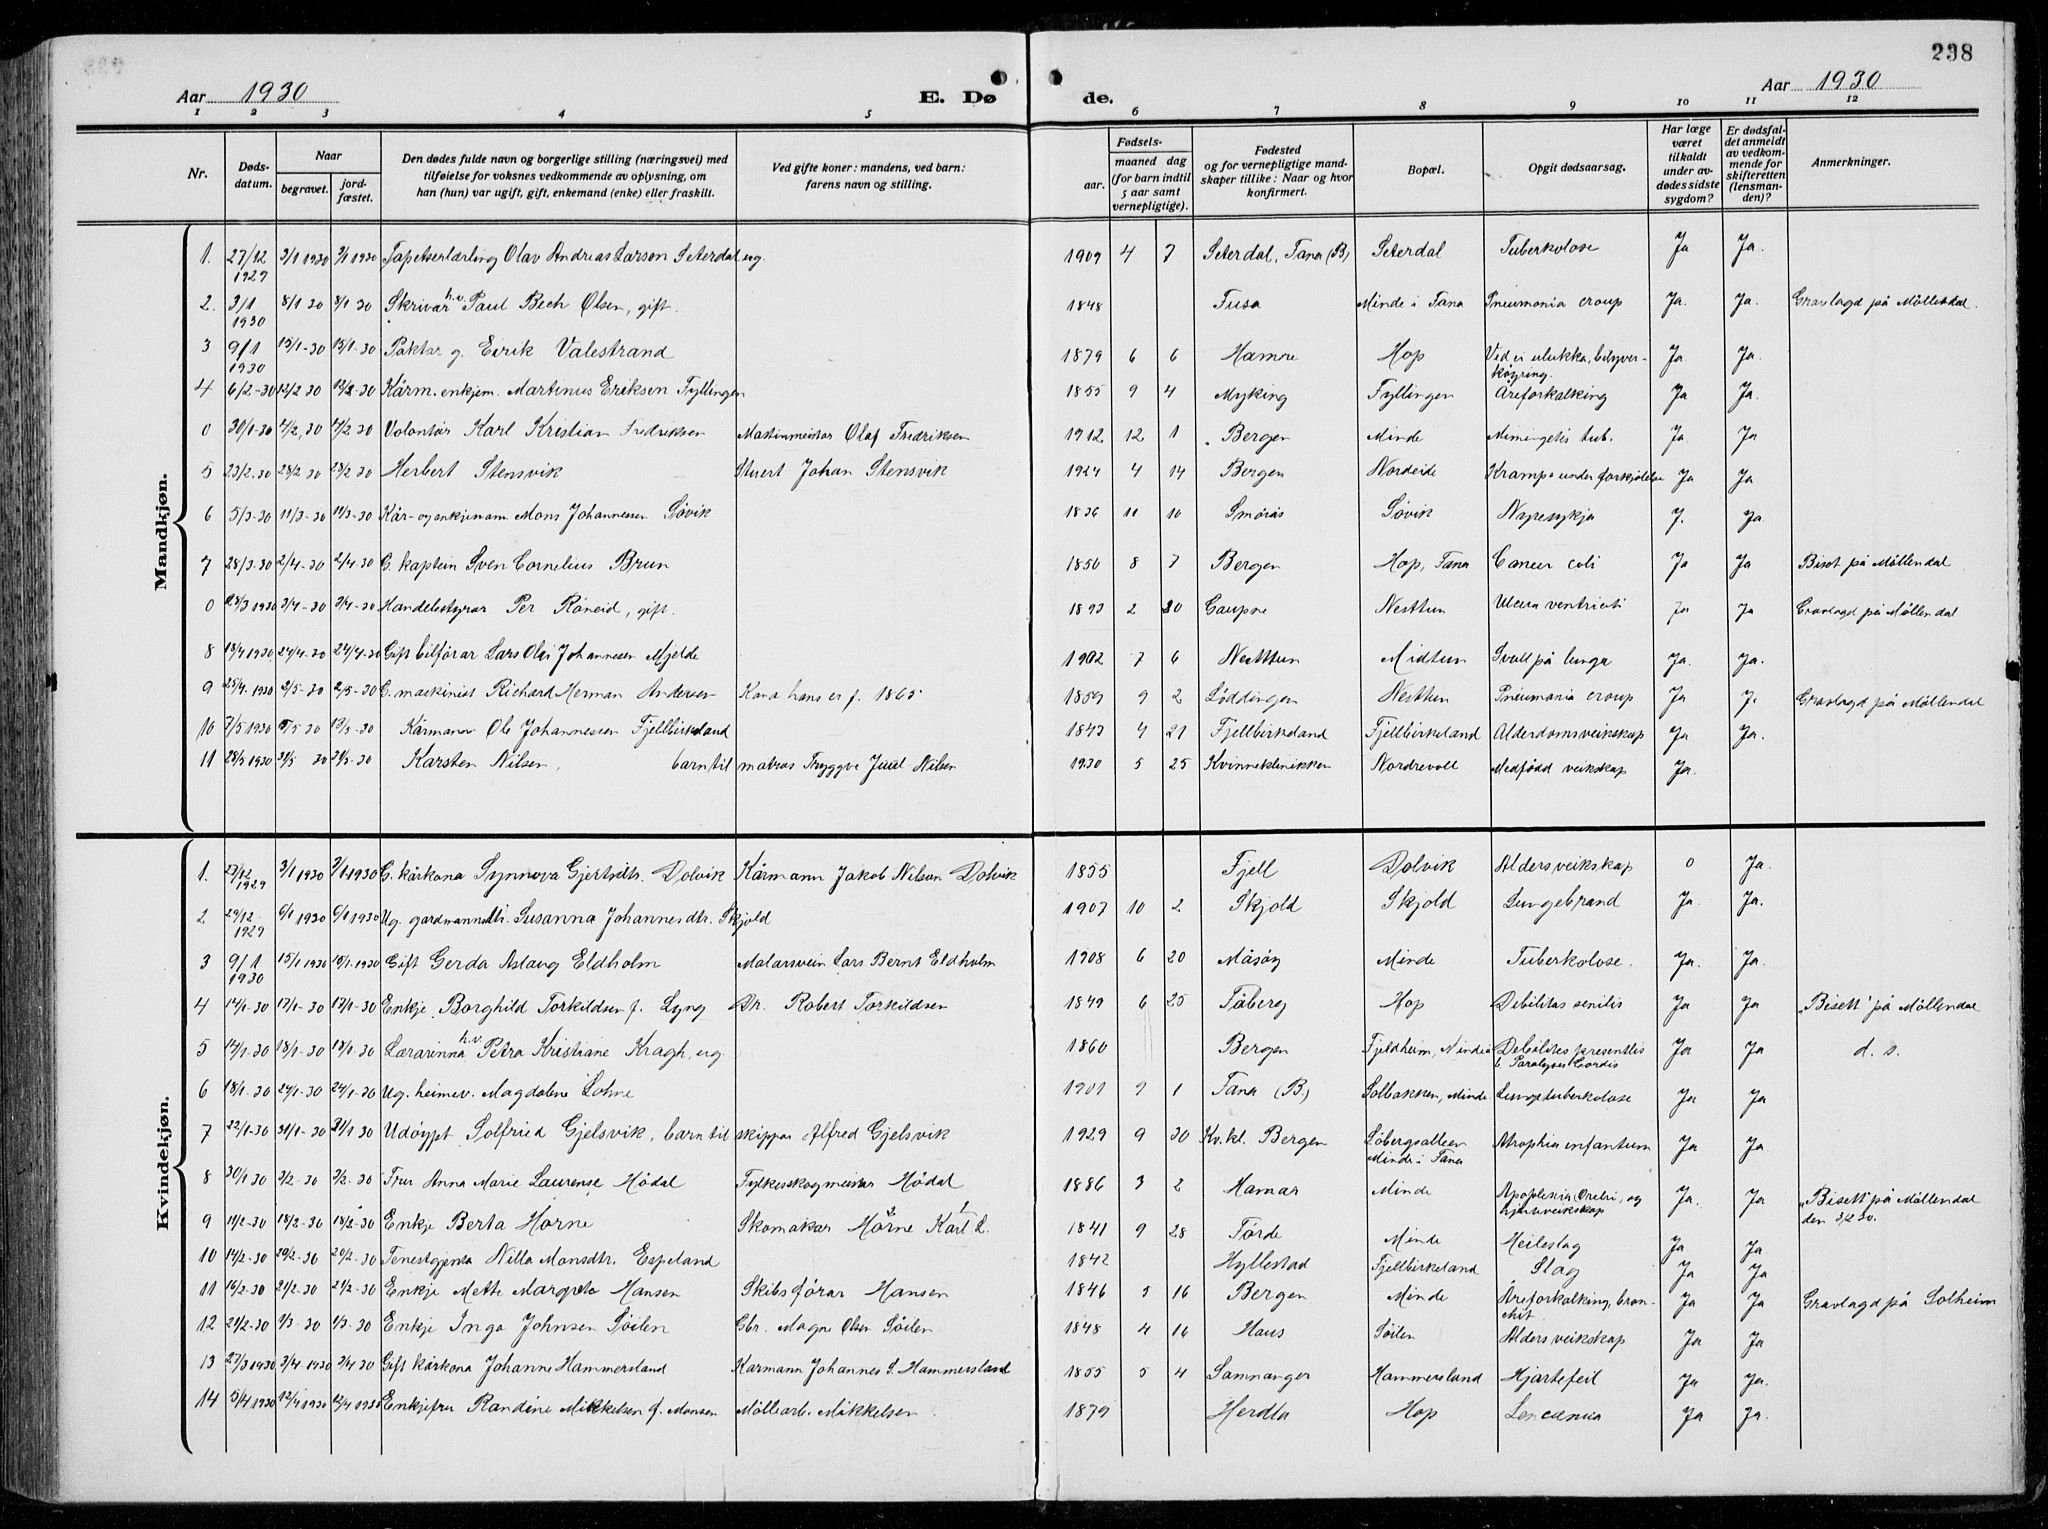 238
Aar 1930 E. Dø de. Aar 1930
1 2 3 4 5 6 7 8 9 10 11 12
Nr. Døds-datum. Naar begravet. jord-fæstet. Den dødes fulde navn og borgerlige stilling (næringsvei) med tilføielse for voksnes vedkommende av oplysning, om han (hun) var ugift, gift, enkemand (enke) eller fraskilt. Ved gifte koner: mandens, ved barn: farens navn og stilling. Fødsels- aar. maaned dag (for barn indtil 5 aar samt vernepligtige). Fødested og for vernepligtige mandskaper tillike: Naar og hvor konfirmert. Bopæl. Opgit dødsaarsag. Har læge været tilkaldt under avdødes sidste sygdom? Er dødsfaldet anmeldt av vedkommende for skifteretten (lensmanden)? Anmerkninger.
Mandkjøn.
1. 27/12 1929 3/1 1930 3/1 1930 Tapetserlærling Olav Andreas Larsen Seterdal ug. 1909 4 7 Seterdal, Fana (B) Seterdal Tuberkolose Ja Ja.
2. 3/1 1930 8/1 30 8/1 30 Skrivar h.v. Paul Bech Olsen, gift. 1848 Fusa Minde i Fana Pneumonia croup Ja. Ja. Gravlagd på Möllendal.
3 9/1 1930 15/1-30 15/1-30 Paktar g. Eirik Valestrand 1879 6 6 Hamre Hop Ved ei ulukka, bilyverkøyring. Ja. Ja.
4 6/2-30 12/2 30 12/2 30 Kårm. enkjem. Martinus Eriksen Fyllingen 1855 9 4 Myking Fyllingen Åreforkalking Ja Ja.
0 30/1-30 4/2, 30 4/2 30 Volontör Karl Kristian Fredriksen Maskinmeistar Olaf Fredriksen 1912 12 1 Bergen Minde Miningetis tub. Ja Ja
5 23/2-30 28/2 30 28/2 30 Herbert Stensvik Stuert Johan Stensvik 1924 4 14 Bergen Nordeide Krampe under forkjølelse Ja Ja
6 5/3-30 11/3-30 11/3-30 Kår- og enkjemam Mons Johannessen Søvik 1836 11 10 Smörås Søvik Nyresykja J. Ja.
7 28/3-30 2/4-30 2/4 30 G. kaptein Sven Cornelius Brun 1850 8 7 Bergen Hop, Fana Cancer coli Ja Ja Biset på Möllendal
0 28/3 1930 3/4-30 3/4-30 Handelsstyrar Per Röneid, gift. 1893 2 20 Gaupne Nesttun Ulcera ventriculi Ja Ja Gravlagd på Möllendal
8 18/4 1930 24/4-30 24/4-30 Gift bilförar Lars Olai Johannesen Mjelde 1902 7 6 Nesttun Midtun Svull på lunga Ja. Ja.
9 25/4. 1930 2/5-30 2/5-30 G. maskinist Richard Herman Andersen Kona hans er f. 1865 1859 9 2 Løddingen Nesttun Pneumonia croup Ja J. Gravlagd på Möllendal
10 7/5 1930 13/5-30 Kårmann Ole Johannessen Fjellbirkeland 1843 4 21 Fjellbirkeland Fjellbirkeland Alderdomsveikskap Ja Ja.
11 28/5 1930 31/5 30 31/5-30 Karsten Nilsen, barn til matros Tryggve Juul Nilsen 1930 5 25 Kvinneklinikken Nordrevoll Medfödd veikskap Ja.
Kvindekjøn.
1. 23/12 1929 3/1 1930 3/1 1930 G. kårkona Synnøva Gjertsdtr. Dolvik Kårmann Jakob Nilsen Dolvik 1855 Fjell Dolvik Aldersveikskap 0 Ja.
2 29/12 1929 6/1 1930 6/1 1930 Ug. gardmannsdtr. Susanna Johannesdtr. Skjold 1907 10 2 Skjold Skjold Lungebrand Ja. Ja.
3 9/1 1930 15/1 1930 15/1-1930 Gift Gerda Aslaug Eldholm Malarsvein Lars Bernt Eldholm 1908 6 20 Måsöy Minde Tuberkolose. Ja. Ja.
4 14/1-30 17/1-30 17/1-30 Enkje Borghild Torkildsen f. Lyng Dr. Robert Torkildsen 1849 6 25 Fåberg Hop Debilitas senilis Ja Ja „Bisett" på Möllendal
5 14/1-30 18/1-30 18/1-30 Lærarinna h.v. Petra Kristiane Kragh, ug. 1860 Bergen Fjeldheim, Minde Debilites presentlis & Paralyses Cordis Ja Ja d. s.
6 18/1-30 24/1-30 24/1-30 Ug. heimev. Magdalene Lohne 1901 9 1 Fana (B.) Solbakken, Minde Lungetuberkolose Ja Ja
7 22/1-30 31/1-30 31/1-30 Udöypt Solfried Gjelsvik, barn til skippar Alfred Gjelsvik 1929 9 30 Kv. kl. Bergen Løbergsalleen Minde i Fana Atrophia infantum Ja Ja
8 30/1 30 3/2-30 3/2-30 Frue Anna Marie Laurense Mödal Fylkesskogmeistar Mödal 1886 3 2 Hamar Minde Apoplexia Cerebri, og hjarteveikskap Ja. Ja. „Bisett" på Möllendal den 3/2 30.
9 11/2-30 18/2-30 18/2-30 Enkje Berta Horne Skomakar Horne Karl L. 1841 9 28 Førde Minde Heileslag Ja Ja
10 14/2-30 20/2-30 20/2-30 Tenestgjenta Nilla Monsdtr. Espeland 1842 Hyllestad Fjellbirkeland Slag Ja Ja
11 16/2-30 21/2-30 21/2-30 Enkje Mette Margrete Hansen Skibsförar Hansen 1846 5 16 Bergen Minde Åreforkalking, bronkit. Ja Ja Gravlagd på Solheim
12 24/2-30 1/3-30 1/3-30 Enkje Inga Johnsen Søilen Gbr. Magne Olsen Søilen 1848 4 16 Haus Søilen Alders veikskap Ja Ja
13 27/3 1930 3/4 1930 3/4 30 Gift kårkona Johanne Hammersland Kårmann Johannes S. Hammersland 1855 5 4 Samnanger Hammersland Hjartefeil Ja Ja.
14 5/4 1930 12/4 1930 12/4 1930 Enkjefru Randine Mikkelsen f. Monsen Møllearb. Mikkelsen 1879 Herdla Hop Leucemia Ja Ja.